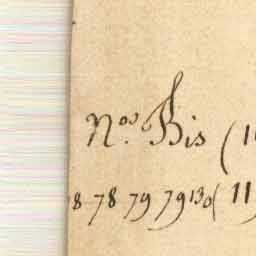 Nos. Bis (1
8 78 79 79 130 ( 11